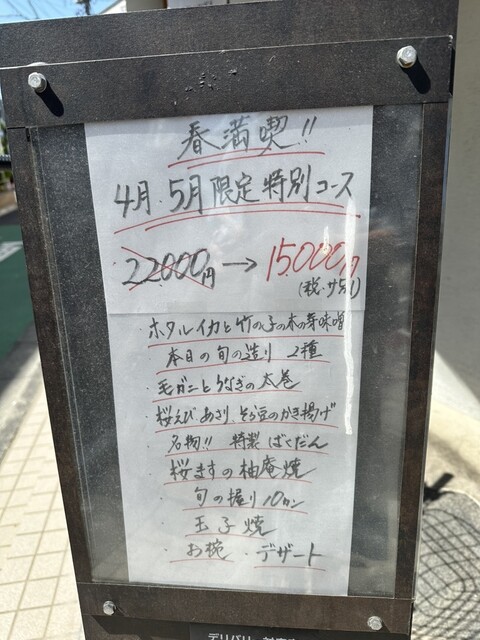 春満喫!!
4月.5月限定特別コース
22000円→15000円
(税・サ別)
・ホタルイカと竹の子の木の芽味噌
本日の旬の造り 2種
・毛ガニとうなぎの太巻
・桜えび あさり、そら豆のかき揚げ
名物!! 特製ばくだん
桜ますの柚庵焼
・旬の握り10カン
・玉子焼
・お椀 ・デザート
デリバリー